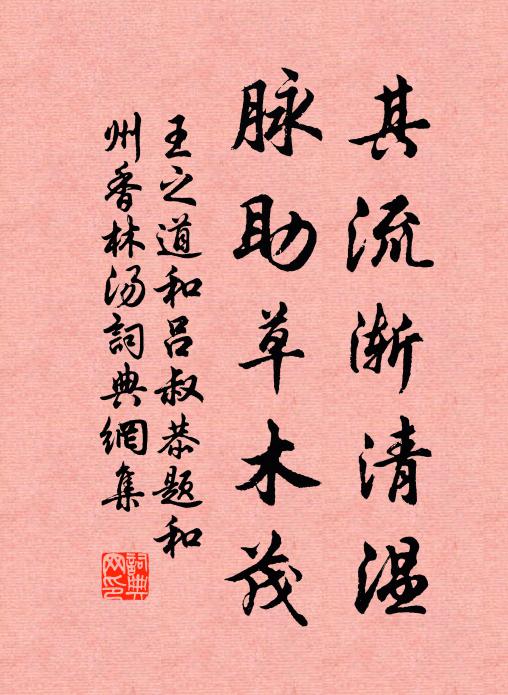 其流渐清温
脉助草木茂
王之道和吕叔恭题和
州香林汤詞典網集
詞典
网印